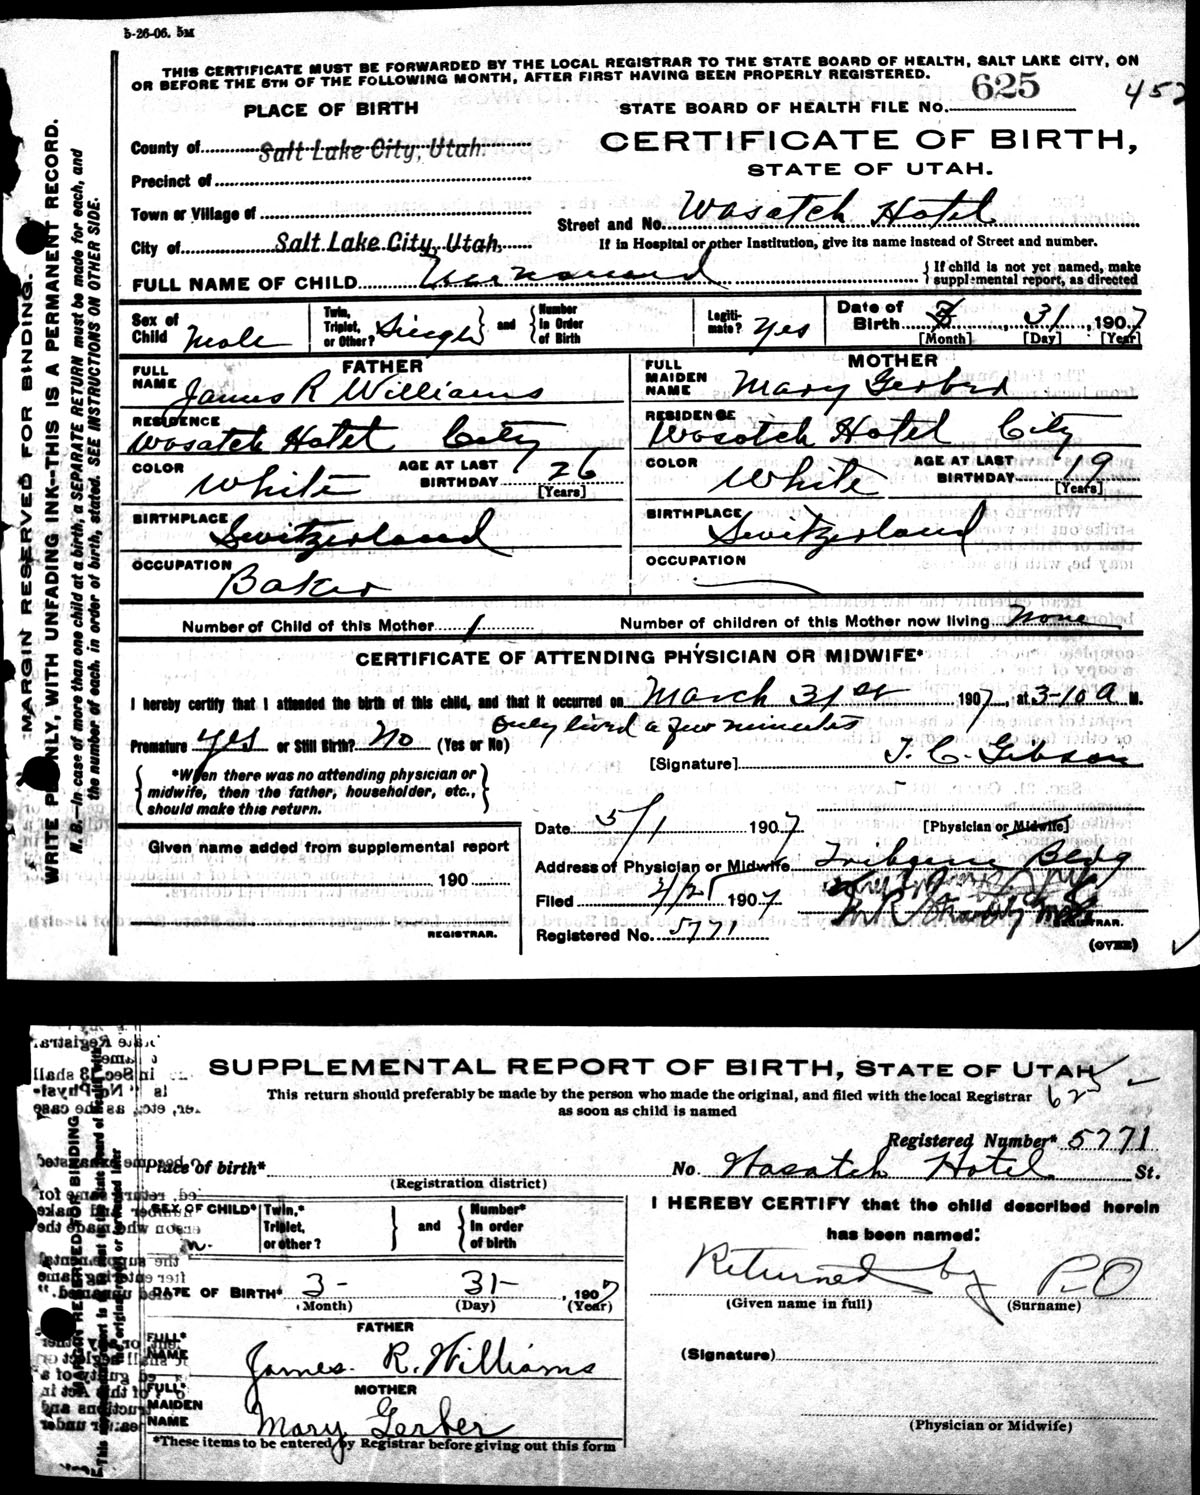 5-26-06. 5M
THIS CERTIFICATE MUST BE FORWARDED BY THE LOCAL REGISTRAR TO THE STATE BOARD OF HEALTH, SALT LAKE CITY, ON
OR BEFORE THE 5TH OF THE FOLLOWING MONTH, AFTER FIRST HAVING BEEN PROPERLY REGISTERED.
PLACE OF BIRTH
STATE BOARD OF HEALTH FILE No. 625
452
CERTIFICATE OF BIRTH,
STATE OF UTAH.
County of Salt Lake City, Utah.
Precinct of
Town or Village of
Street and No. Wasatch Hotel
City of Salt Lake City, Utah,
If in Hospital or other Institution, give its name instead of Street and number.
FULL NAME OF CHILD Unnamed
{ If child is not yet named, make supplemental report, as directed
Sex of Child Male
Twin, Triplet, or Other? Single } and { Number in Order of Birth
Legitimate? Yes
Date of Birth 3, 31, 1907
[Month] [Day] [Year]
FATHER
FULL NAME James R Williams
MOTHER
FULL MAIDEN NAME Mary Gerber
RESIDENCE Wasatch Hotel City
RESIDENCE Wasatch Hotel City
COLOR White
AGE AT LAST BIRTHDAY 26 [Years]
COLOR White
AGE AT LAST BIRTHDAY 19 [Years]
BIRTHPLACE Switzerland
BIRTHPLACE Switzerland
OCCUPATION Baker
OCCUPATION
Number of Child of this Mother 1
Number of children of this Mother now living None
CERTIFICATE OF ATTENDING PHYSICIAN OR MIDWIFE*
I hereby certify that I attended the birth of this child, and that it occurred on March 31st 1907, at 3-10 a M.
only lived a few minutes
Premature yes or Still Birth? No (Yes or No)
[Signature] T. C. Gibson
{ *When there was no attending physician or midwife, then the father, householder, etc., should make this return. }
[Physician or Midwife]
Date 5/1 1907
Given name added from supplemental report
190
REGISTRAR.
Address of Physician or Midwife Tribune Bldg
Filed 1907
REGISTRAR.
Registered No. 5771
(OVER)
MARGIN RESERVED FOR BINDING.
WRITE PLAINLY, WITH UNFADING INK—THIS IS A PERMANENT RECORD.
N. B.—In case of more than one child at a birth, a SEPARATE RETURN must be made for each, and
the number of each, in order of birth, stated. SEE INSTRUCTIONS ON OTHER SIDE.
SUPPLEMENTAL REPORT OF BIRTH, STATE OF UTAH
This return should preferably be made by the person who made the original, and filed with the local Registrar
as soon as child is named
625
Registered Number* 5771
Place of birth*
(Registration district)
No. Wasatch Hotel St.
SEX OF CHILD* m.
Twin,* Triplet, or other? } and { Number* In order of birth
I HEREBY CERTIFY that the child described herein
has been named:
Returned by P.O
(Given name in full) (Surname)
DATE OF BIRTH* 3- 31- 1907
(Month) (Day) (Year)
FATHER
FULL* NAME James. R. Williams
(Signature)
MOTHER
FULL* MAIDEN NAME Mary Gerber
(Physician or Midwife)
*These items to be entered by Registrar before giving out this form